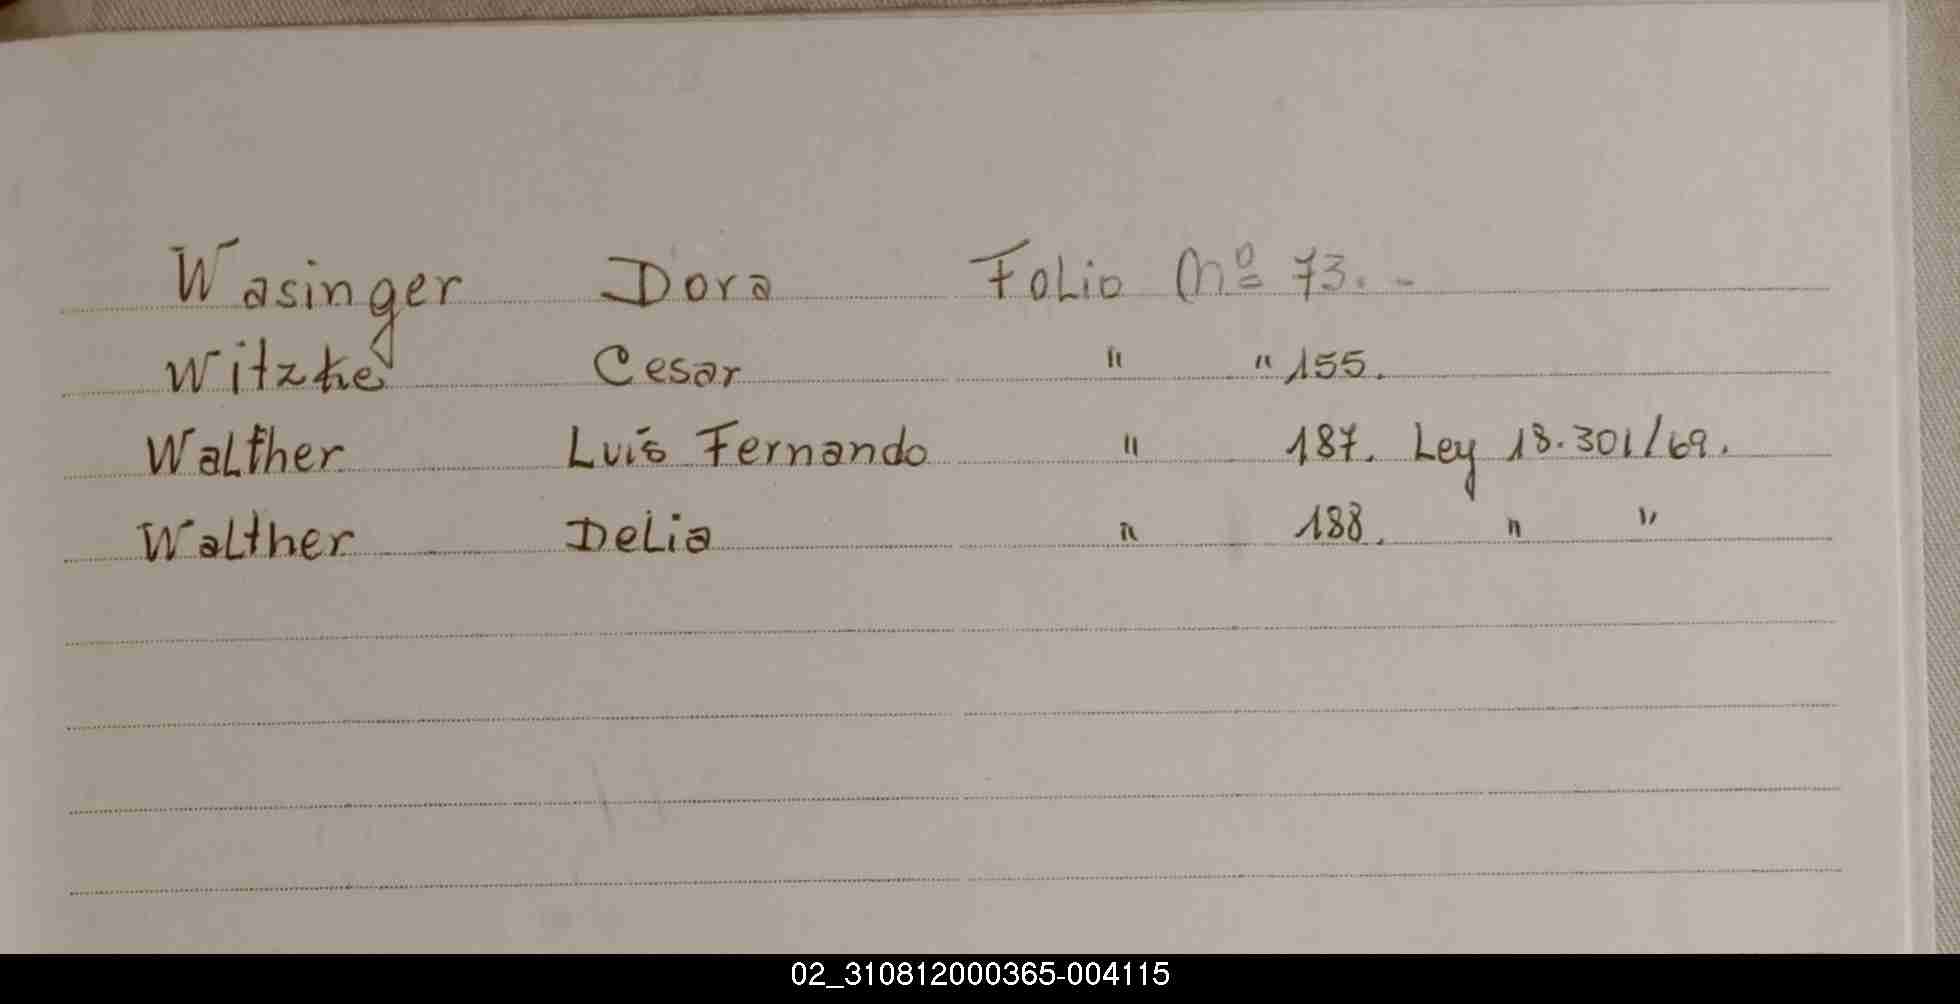 Wasinger Dora Folio Nº 73.-
Witzke Cesar " " 155.
Walther Luis Fernando " 187. Ley 18.301/69.
Walther Delia " 188. " "
02_310812000365-004115